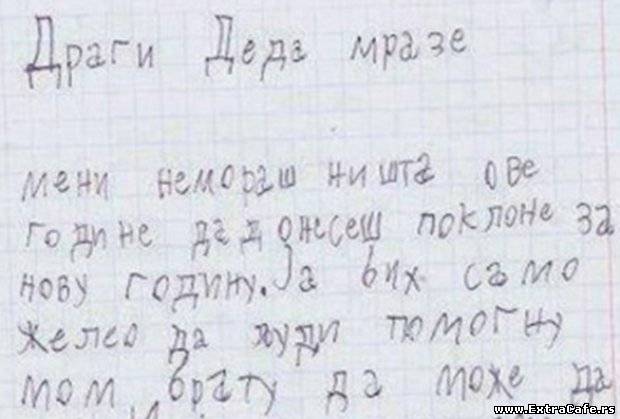 Драги Деда мразе
мени немораш ништа ове
године да донесеш поклоне за
нову годину. Ја бих само
желео да људи помогну
мом брату да може да
www.ExtraCafe.rs